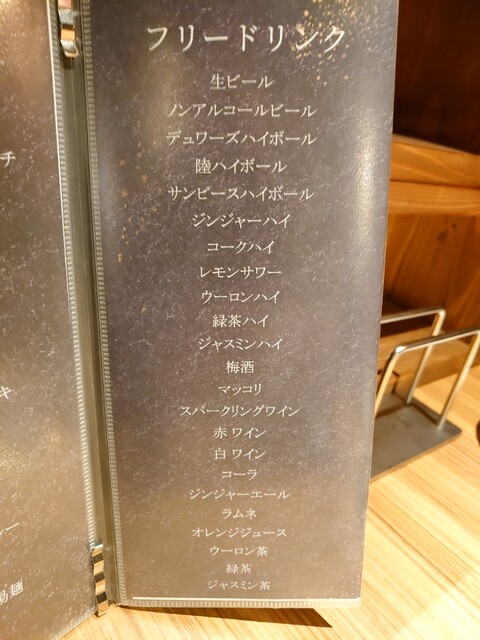 フリードリンク
生ビール
ノンアルコールビール
デュワーズハイボール
陸ハイボール
サンピースハイボール
ジンジャーハイ
コークハイ
レモンサワー
ウーロンハイ
緑茶ハイ
ジャスミンハイ
梅酒
マッコリ
スパークリングワイン
赤 ワイン
白 ワイン
コーラ
ジンジャーエール
ラムネ
オレンジジュース
ウーロン茶
緑茶
ジャスミン茶
チ
キ
ー
麺